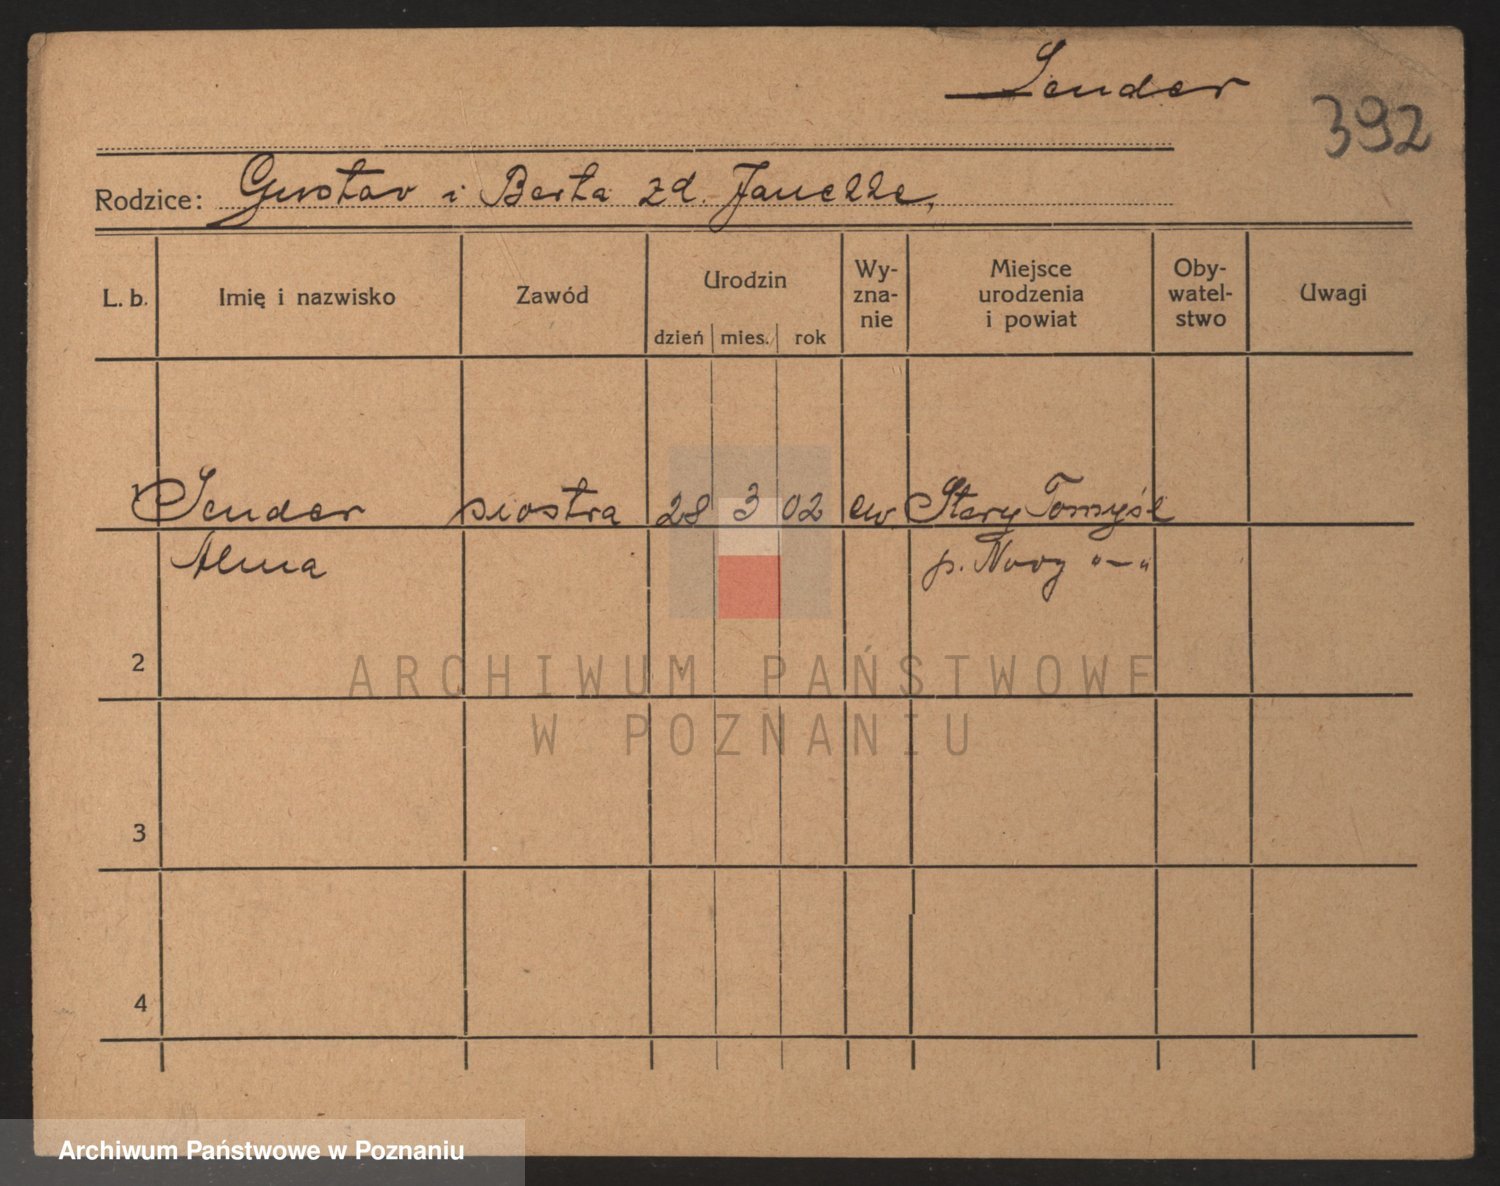 Sender
392
Rodzice: Gustav i Berta zd. Janeƚƚe,
L. b. Imię i nazwisko Zawód Urodzin dzień mies. rok Wy-zna-nie Miejsce urodzenia i powiat Oby-watel-stwo Uwagi
1 Sender siostra 28 3 02 ew. Stary Tomyśl
Alma p. Nowy "—"
2
ARCHIWUM PAŃSTWOWE
W POZNANIU
3
4
Archiwum Państwowe w Poznaniu